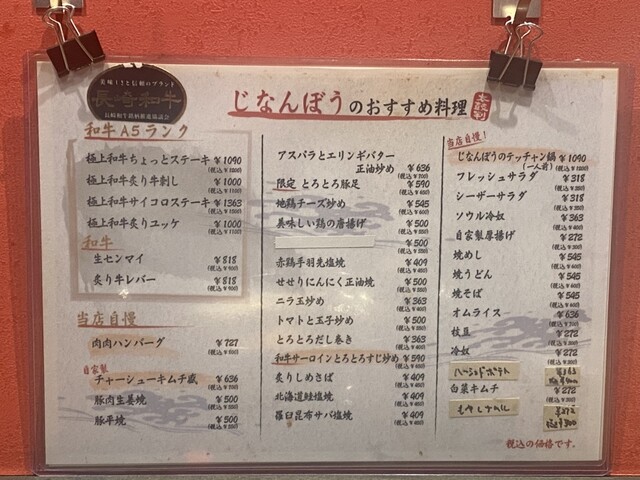 美味しさと信頼のブランド
長崎和牛
長崎和牛銘柄推進協議会
じなんぼうのおすすめ料理
和牛A5ランク
極上和牛ちょっとステーキ ¥1090
極上和牛炙り牛刺し ¥1000
(税込¥1100)
極上和牛サイコロステーキ ¥1363
(税込¥1500)
極上和牛炙りユッケ ¥1000
(税込¥1100)
和牛
生センマイ ¥818
(税込¥900)
炙り牛レバー ¥818
(税込¥900)
当店自慢
肉肉ハンバーグ ¥727
(税込¥800)
自家製
チャーシューキムチ蔵 ¥636
(税込¥700)
豚肉生姜焼 ¥500
(税込¥550)
豚平焼 ¥500
(税込¥550)
アスパラとエリンギバター
正油炒め ¥636
(税込¥700)
限定 とろとろ豚足 ¥590
(税込¥650)
地鶏チーズ炒め ¥545
(税込¥600)
美味しい鶏の唐揚げ ¥500
(税込¥550)
¥500
(税込¥550)
赤鶏手羽先塩焼 ¥409
(税込¥450)
せせりにんにく正油焼 ¥500
(税込¥550)
ニラ玉炒め ¥363
(税込¥400)
トマトと玉子炒め ¥500
(税込¥550)
とろとろだし巻き ¥363
(税込¥400)
和牛サーロインとろとろすじ炒め ¥590
(税込¥650)
炙りしめさば ¥409
(税込¥450)
北海道鮭塩焼 ¥409
(税込¥450)
羅臼昆布サバ塩焼 ¥409
(税込¥450)
当店自慢!
じなんぼうのテッチャン鍋 ¥1090
(一人前)
フレッシュサラダ ¥318
(税込¥350)
シーザーサラダ ¥318
(税込¥350)
ソウル冷奴 ¥363
(税込¥400)
自家製厚揚げ ¥272
(税込¥300)
焼めし ¥545
(税込¥600)
焼うどん ¥545
(税込¥600)
焼そば ¥545
(税込¥600)
オムライス ¥636
(税込¥700)
枝豆 ¥272
(税込¥300)
冷奴 ¥272
(税込¥300)
ハッシュドポテト
白菜キムチ ¥272
もやしナムル ¥272
税込¥300
税込の価格です。